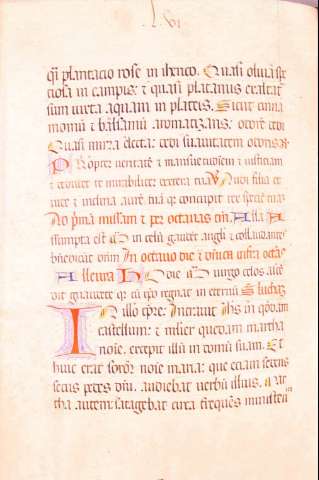 LVI
qͥ plantacio rose in iherico. Quasi oliua spe
ciosa in campis: ⁊ quasi platanus exaltata
sum iuxta aquam in plateis. Sicut cinna
momū ⁊ balsamū aromatizans: odorē dedi
Quasi mirra electa: dedi suauitatem odoris.
Propter ueritatē ⁊ mansuetudinem ⁊ iusticiam
⁊ deducet te mirabiliter dextera tua Audi filia et
uide ⁊ inclina aurē tuā qͥ concupit rex speciē
Ad pͥmā missam ⁊ per octauas Alla A
ssumpta est in celū gaudet angli ⁊ collaudantes
bn̄edicūt dn̄m In octauo die ⁊ dn̄ica infra octās
Alleluia Hodie uirgo celos ascē
dit gaudete qͥ cū xp̄o regnat in eternū S luchaz
In illo tp̄re: Intrauit ihs in qͦdam
castellum: ⁊ mulier quedam martha
noīe, excepit illū in domū suam. Et
huic erat soror noīe maria: que etiam sedens
secus pedes dn̄i, audiebat uerbū illius. Mar
tha autem satagebat circa freqͥēs ministeriū